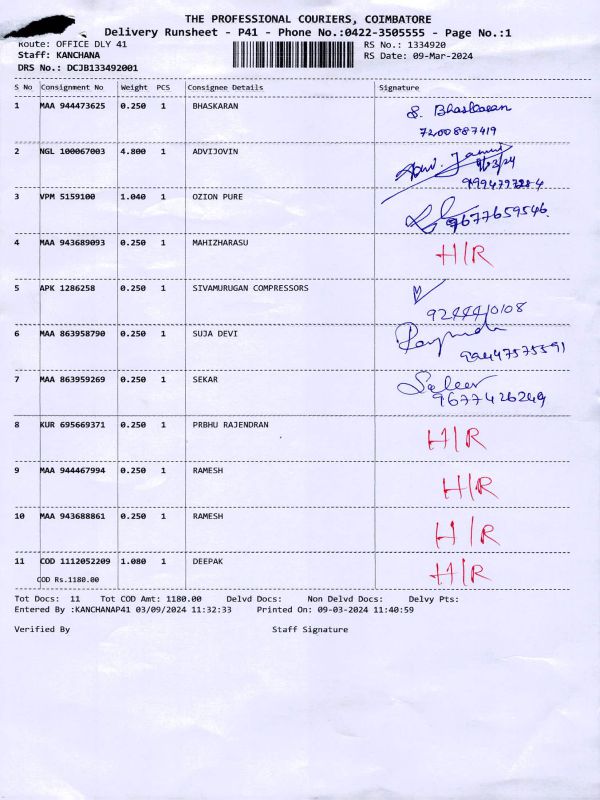 THE PROFESSIONAL COURIERS, COIMBATORE
Delivery Runsheet - P41 - Phone No.:0422-3505555 - Page No.:1
Route: OFFICE DLY 41 RS No.: 1334920
Staff: KANCHANA RS Date: 09-Mar-2024
DRS No.: DCJB133492001
S No Consignment No Weight PCS Consignee Details Signature
1 MAA 944473625 0.250 1 BHASKARAN S. Bhaskaran
7200887419
2 NGL 100067003 4.800 1 ADVIJOVIN
3 VPM 5159100 1.040 1 OZION PURE 9677659546
4 MAA 943689093 0.250 1 MAHIZHARASU H/R
5 APK 1286258 0.250 1 SIVAMURUGAN COMPRESSORS
6 MAA 863958790 0.250 1 SUJA DEVI
7 MAA 863959269 0.250 1 SEKAR
9677426249
8 KUR 695669371 0.250 1 PRBHU RAJENDRAN H/R
9 MAA 944467994 0.250 1 RAMESH H/R
10 MAA 943688861 0.250 1 RAMESH H/R
11 COD 1112052209 1.080 1 DEEPAK H/R
COD Rs.1180.00
Tot Docs: 11 Tot COD Amt: 1180.00 Delvd Docs: Non Delvd Docs: Delvy Pts:
Entered By :KANCHANAP41 03/09/2024 11:32:33 Printed On: 09-03-2024 11:40:59
Verified By Staff Signature